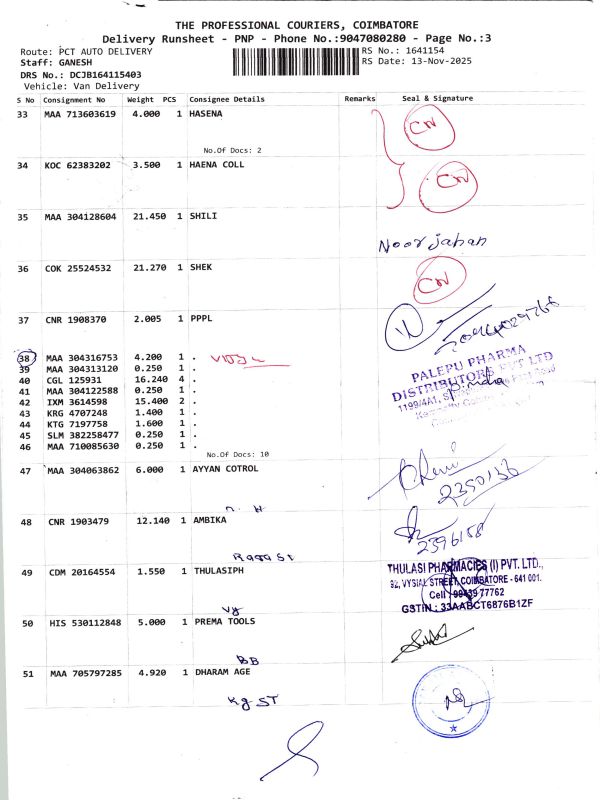 THE PROFESSIONAL COURIERS, COIMBATORE
Delivery Runsheet - PNP - Phone No.:9047080280 - Page No.:3
Route: PCT AUTO DELIVERY RS No.: 1641154
Staff: GANESH RS Date: 13-Nov-2025
DRS No.: DCJB164115403
Vehicle: Van Delivery
S No Consignment No Weight PCS Consignee Details Remarks Seal & Signature
33 MAA 713603619 4.000 1 HASENA CN
No.Of Docs: 2
34 KOC 62383202 3.500 1 HAENA COLL CN
35 MAA 304128604 21.450 1 SHILI
Noorjahan
36 COK 25524532 21.270 1 SHEK CN
37 CNR 1908370 2.005 1 PPPL
38 MAA 304316753 4.200 1 .
39 MAA 304313120 0.250 1 .
40 CGL 125931 16.240 4 .
41 MAA 304122588 0.250 1 .
42 IXM 3614598 15.400 2 .
43 KRG 4707248 1.400 1 .
44 KTG 7197758 1.600 1 .
45 SLM 382258477 0.250 1 .
46 MAA 710085630 0.250 1 .
PALEPU PHARMA
DISTRIBUTORS PVT LTD
No.Of Docs: 10
47 MAA 304063862 6.000 1 AYYAN COTROL
2350136
48 CNR 1903479 12.140 1 AMBIKA
2396158
49 CDM 20164554 1.550 1 THULASIPH
THULASI PHARMACIES (I) PVT. LTD.,
92, VYSIAL STREET, COIMBATORE - 641 001.
Cell : 99439 77762
GSTIN : 33AABCT6876B1ZF
50 HIS 530112848 5.000 1 PREMA TOOLS
BB
51 MAA 705797285 4.920 1 DHARAM AGE
Kg ST